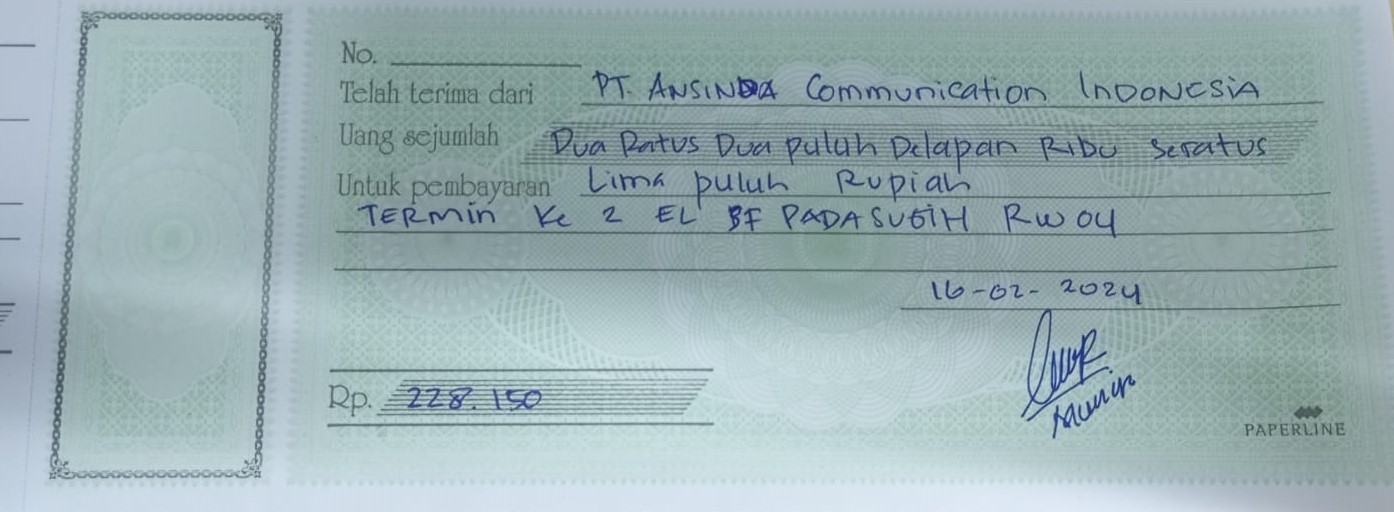 No.
Telah terima dari PT. ANSINDA Communication INDONESIA
Uang sejumlah Dua Ratus Dua puluh Delapan Ribu Seratus
Untuk pembayaran Lima puluh Rupiah
TERMIN Ke 2 EL BF PADASUGIH RW 04
16-02-2024
Rp. 228.150
PAPERLINE